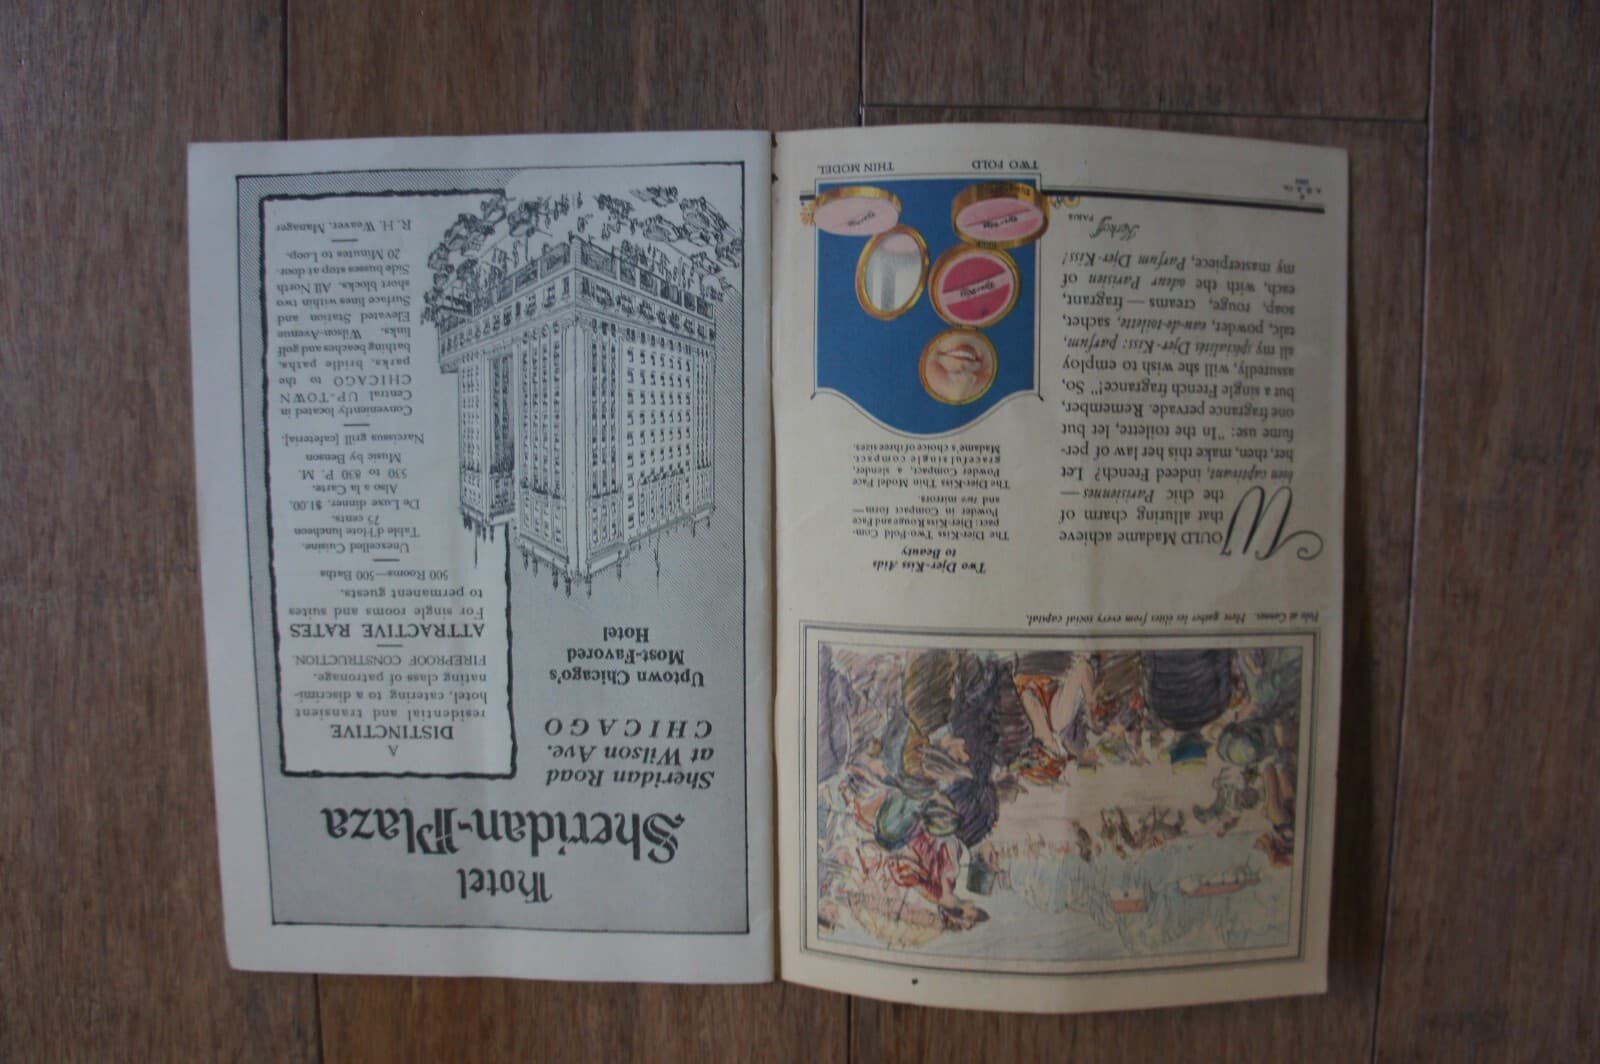 Polo at Cannes. Here gather its élites from every social capital.
WOULD Madame achieve
that alluring charm of
the chic Parisiennes—
been captivant, indeed French? Let
her, then, make this her law of per-
fume use: "In the toilette, let but
one fragrance pervade. Remember,
but a single French fragrance!" So,
assuredly, will she wish to employ
all my spécialités Djer-Kiss: parfum,
talc, powder, eau-de-toilette, sachet,
soap, rouge, creams—fragrant,
each, with the odeur Parisien of
my masterpiece, Parfum Djer-Kiss!
Kerkoff
PARIS
Two Djer-Kiss Aids
to Beauty
The Djer-Kiss Two-Fold Com-
pact: Djer-Kiss Rouge and Face
Powder in Compact form—
and two mirrors.
The Djer-Kiss Thin Model Face
Powder Compact, a slender,
graceful single compact.
Madame's choice of three sizes.
TWO FOLD
THIN MODEL
Hotel
Sheridan-Plaza
Sheridan Road
at Wilson Ave.
CHICAGO
Uptown Chicago's
Most-Favored
Hotel
A
DISTINCTIVE
residential and transient
hotel, catering to a discrimi-
nating class of patronage.
FIREPROOF CONSTRUCTION.
ATTRACTIVE RATES
For single rooms and suites
to permanent guests.
500 Rooms—500 Baths
Unexcelled Cuisine.
Table d'Hote luncheon
75 cents.
De Luxe dinner, $1.00.
Also a la Carte.
530 to 830 P. M.
Music by Benson
Narcissus grill [cafeteria].
Conveniently located in
Central UP-TOWN
CHICAGO to the
parks, bridle paths,
bathing beaches and golf
links. Wilson-Avenue
Elevated Station and
Surface lines within two
short blocks. All North
Side busses stop at door.
20 Minutes to Loop.
R. H. Weaver, Manager